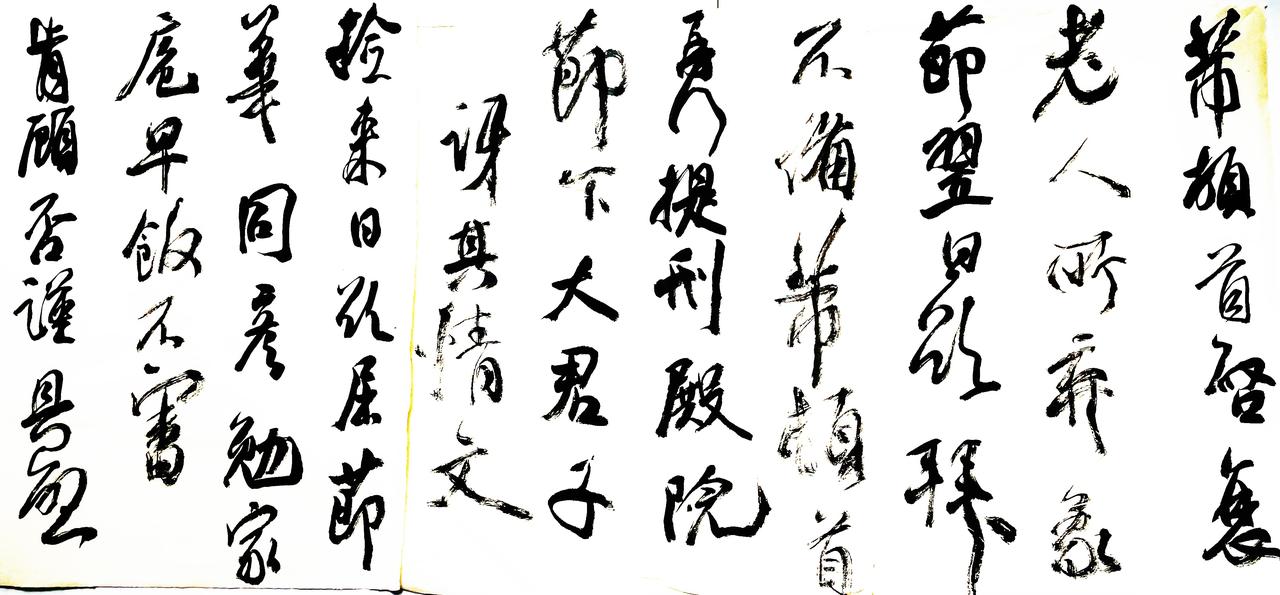 芾頓首啓衰
老人所棄蒙
節翌日欲拜
不備芾頓首
提刑殿院
節下大君子
訝其情文
來日欲屈節
華同彥勉家
庵早飯不審
肯顧否謹具啓